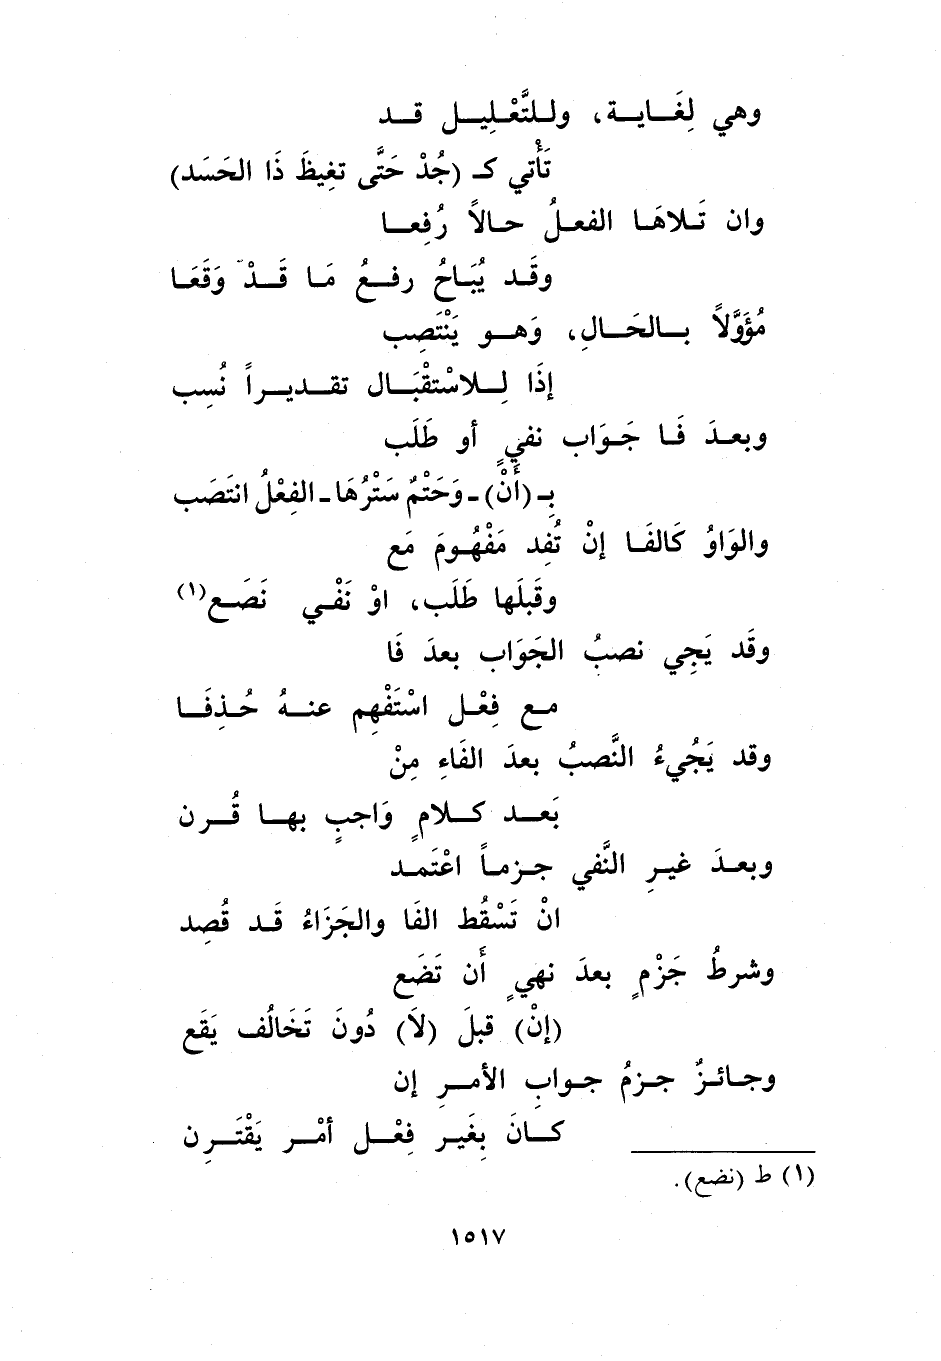 وهي لِغَايَة، وللتَّعْلِيل قد
تَأْتي كـ (جُدْ حَتَّى تغيظَ ذَا الحَسَد)
وان تَلاهَا الفعلُ حالاً رُفِعا
وقَد يُبَاحُ رفعُ مَا قَدْ وَقَعَا
مُؤَوَّلاً بالحَالِ، وَهو يَنْتَصِب
إذَا لِلاسْتقْبَال تقديراً نُسِب
وبعدَ فَا جَوَاب نفيٍ أو طَلَب
بِـ (أنْ) ـ وَحَتْمٌ سَتْرُهَا ـ الفِعْلُ انتَصَب
والوَاوُ كَالفَا إنْ تُفِد مَفْهُومَ مَع
وقَبلَها طَلَب، اوْ نَفْي نَصَع(١)
وقَد يَجِي نصبُ الجَوَاب بعدَ فَا
مع فِعْل اسْتَفْهِم عنهُ حُذِفَا
وقد يَجُيءُ النَّصبُ بعدَ الفَاءِ مِنْ
بَعد كلامٍ وَاجبٍ بها قُرن
وبعدَ غيرِ النَّفي جزماً اعْتَمد
انْ تَسْقُط الفَا والجَزَاءُ قَد قُصِد
وشرطُ جَزْمٍ بعدَ نهيٍ أَن تَضَع
(إنْ) قبلَ (لاَ) دُونَ تَخَالُف يَقَع
وجائزٌ جزمُ جوابِ الأمرِ إن
كانَ بِغَير فِعْل أمْر يَقْتَرِن
(١) ط (نضع).
١٥١٧